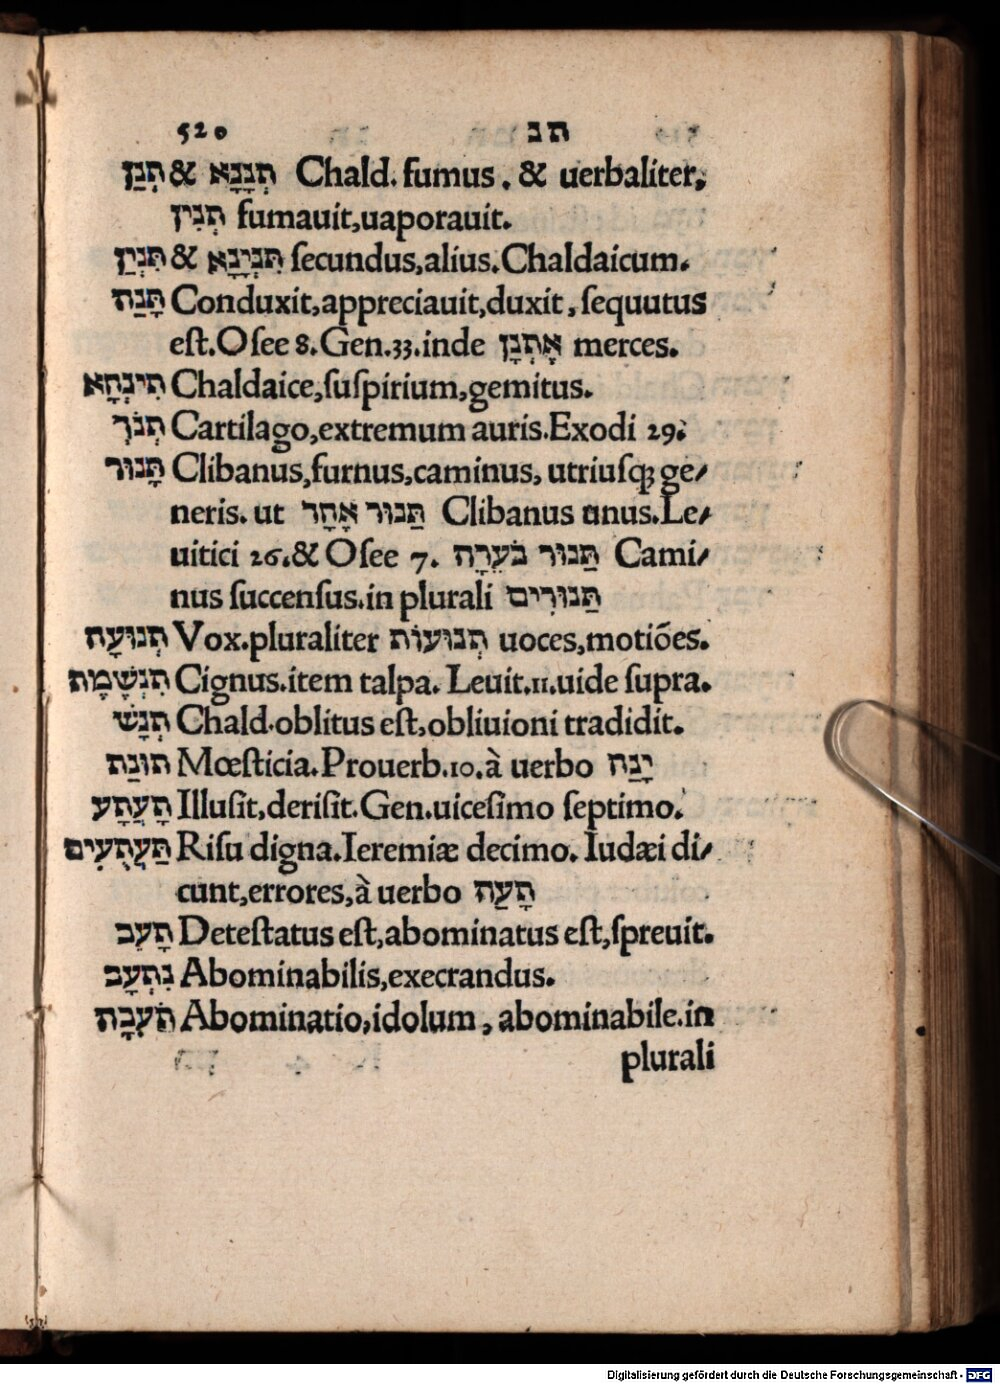 520 תנ
תְּנַן & תְּנָנָא Chald. fumus. & uerbaliter,
תְּנִין fumauit,uaporauit.
תִּנְיַן & תִּנְיָנָא ſecundus,alius.Chaldaicum.
תָּנַה Conduxit,appreciauit,duxit, ſequutus
eſt.Oſee 8.Gen.33.inde אֶתְנָן merces.
תִּינְחָא Chaldaice,ſuſpirium,gemitus.
תְּנֹךְ Cartilago,extremum auris.Exodi 29.
תָּנוּר Clibanus,furnus,caminus, utriuſq; ge/
neris. ut תַּנּוּר אֶחָד Clibanus unus.Le/
uitici 26.& Oſee 7. תַּנּוּר בֹּעֵרָה Cami/
nus ſuccenſus.in plurali תַּנּוּרִים
תְּנוּעָה Vox.pluraliter תְּנוּעוֹת uoces,motiões.
תִּנְשֶׁמֶת Cignus.item talpa. Leuit.11.uide ſupra.
תְּנָשׁ Chald.oblitus eſt,obliuioni tradidit.
תּוּגַת Mœſticia.Prouerb.10.à uerbo יָגַה
תָּעֲתָע Illuſit,deriſit.Gen.uiceſimo ſeptimo.
תַּעְתֻּעִים Riſu digna.Ieremiæ decimo. Iudæi di/
cunt,errores,à uerbo תָּעָה
תָּעַב Deteſtatus eſt,abominatus eſt,ſpreuit.
נִתְעָב Abominabilis,execrandus.
תֹּעֵבָה Abominatio,idolum, abominabile.in
plurali
Digitalisierung gefördert durch die Deutsche Forschungsgemeinschaft - DFG